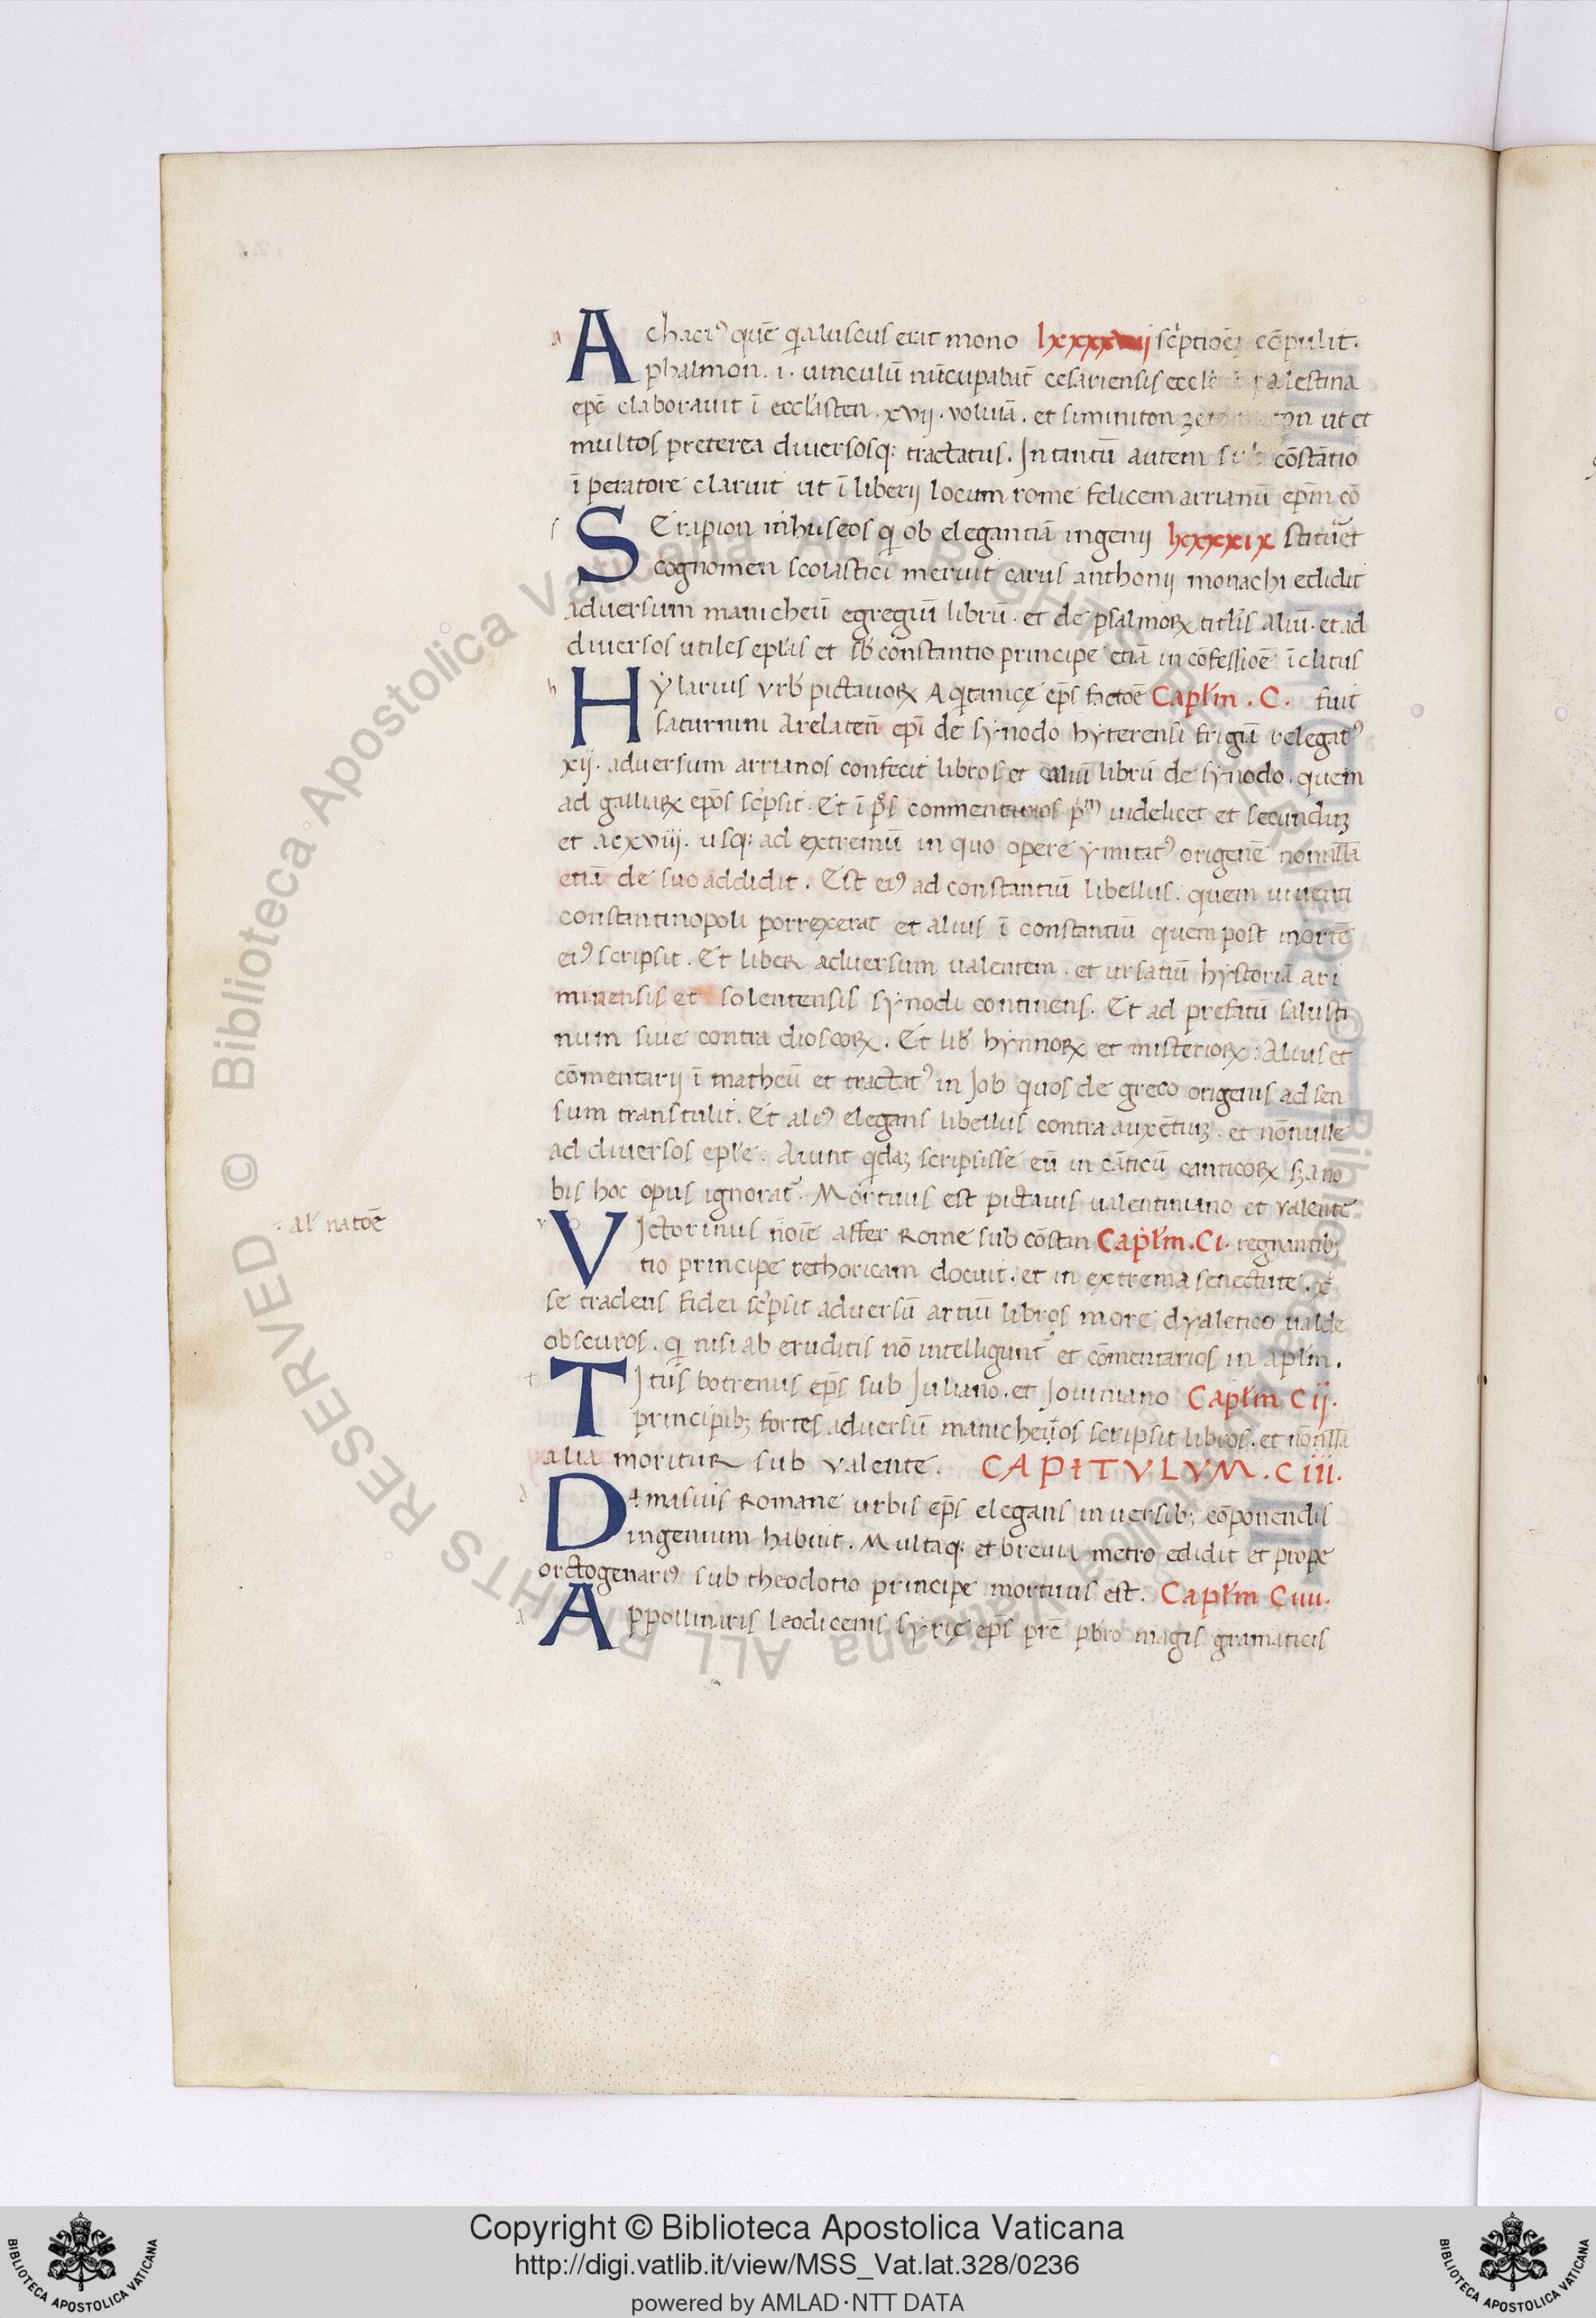 Achaci⁹ quē q̄a luscus erat mono lxxxxviij sc̄ptiōeȝ cōpulit.
phalmon. i. vinculū nūcupabat̄ cesariensis palestina
ep̄c elaborauit ī eccl̄asten. xvij. volūiā. et siminiton ut et
multos preterea diuersosq; tractatus. In tantū autem sub cōstātio
īperatore claruit ut ī liberij locum rome felicem arrianū ep̄m cō
Serapion q̄ ob elegantiā ingenij lxxxxix stitūet
cognomen scolastici meruit carus anthonij monachi edidit
aduersum manicheū egregiū librū. et de psalmoꝝ titl̄is aliū. et ad
diuersos utiles epl̄as et sb̄ constantio principe etiā in cōfessiōe īclitus
Hylarius vrb̄ pictauoꝝ Aq̄tanicę ep̄s factōe Capl̄m. C. fuit
saturnini Arelateñ ep̄i de synodo byterensi frigiā relegat⁹
xij. aduersum arrianos confecit libros et aliū librū de synodo. quem
ad galliaꝝ ep̄os sc̄psit. Et ī p̄s commentarios p̄m videlicet et secunduȝ
et a cxviij. usq; ad extremū in quo opere ymitat⁹ origenē nonnull̄a
etiā de suo addidit. Est ei⁹ ad constantiū libellus. quem viuenti
constantinopoli porrexerat et alius ī constantiū quem post mortē
ei⁹ scripsit. Et liber aduersum valentem. et ursatiū hystoriā ari
minensis et solentensis synodi continens. Et ad prefatū salusti
num siue contra dioscoꝝ. Et lib̄ hymnoꝝ et misterioꝝ: Alius et
cōmentarij ī matheū et tractat⁹ in Job quos de greco origenis ad sen
sum transtulit. Et ali⁹ elegans libellus contra auxētiuȝ. et nōnulle
ad diuersos epl̄e. Aiunt q̄daȝ scripsisse eū in cāticū canticoꝝ sȝ a no
bis hoc opus ignorat̄. Mortuus est pictauis valentiniano et valente
. al̄ natōe
Victorinus nōie affer Rome sub cōstan Capl̄m. Ci. regnantibȝ
tio principe rethoricam docuit. et in extrema senectute. x̄
se tradens fidei sc̄psit aduersū arriū libros more dyaletico valde
obscuros. q̄ nisi ab eruditis nō intelligunt̄ et cōmentarios in apl̄m.
Titus botrenus ep̄s sub Juliano. et Jouiniano Capl̄m Cij.
principibȝ fortes aduersū manicheos scripsit libros. et nōnull̄a
alia moritur sub valente. CAPITVLVM. Ciii.
Damasus Romane urbis ep̄s elegans in uersibȝ cōponendis
ingenium habuit. Multaq; et breuia metro edidit et prope
octogenari⁹ sub theodotio principe mortuus est. Capl̄m Ciiii.
Appollinaris leodicenus syrię ep̄s prē pb̄ro magis gramaticis
Copyright © Biblioteca Apostolica Vaticana
http://digi.vatlib.it/view/MSS_Vat.lat.328/0236
powered by AMLAD·NTT DATA
© Biblioteca Apostolica Vaticana ALL RIGHTS RESERVED
BIBLIOTECA APOSTOLICA VATICANA
BIBLIOTECA APOSTOLICA VATICANA